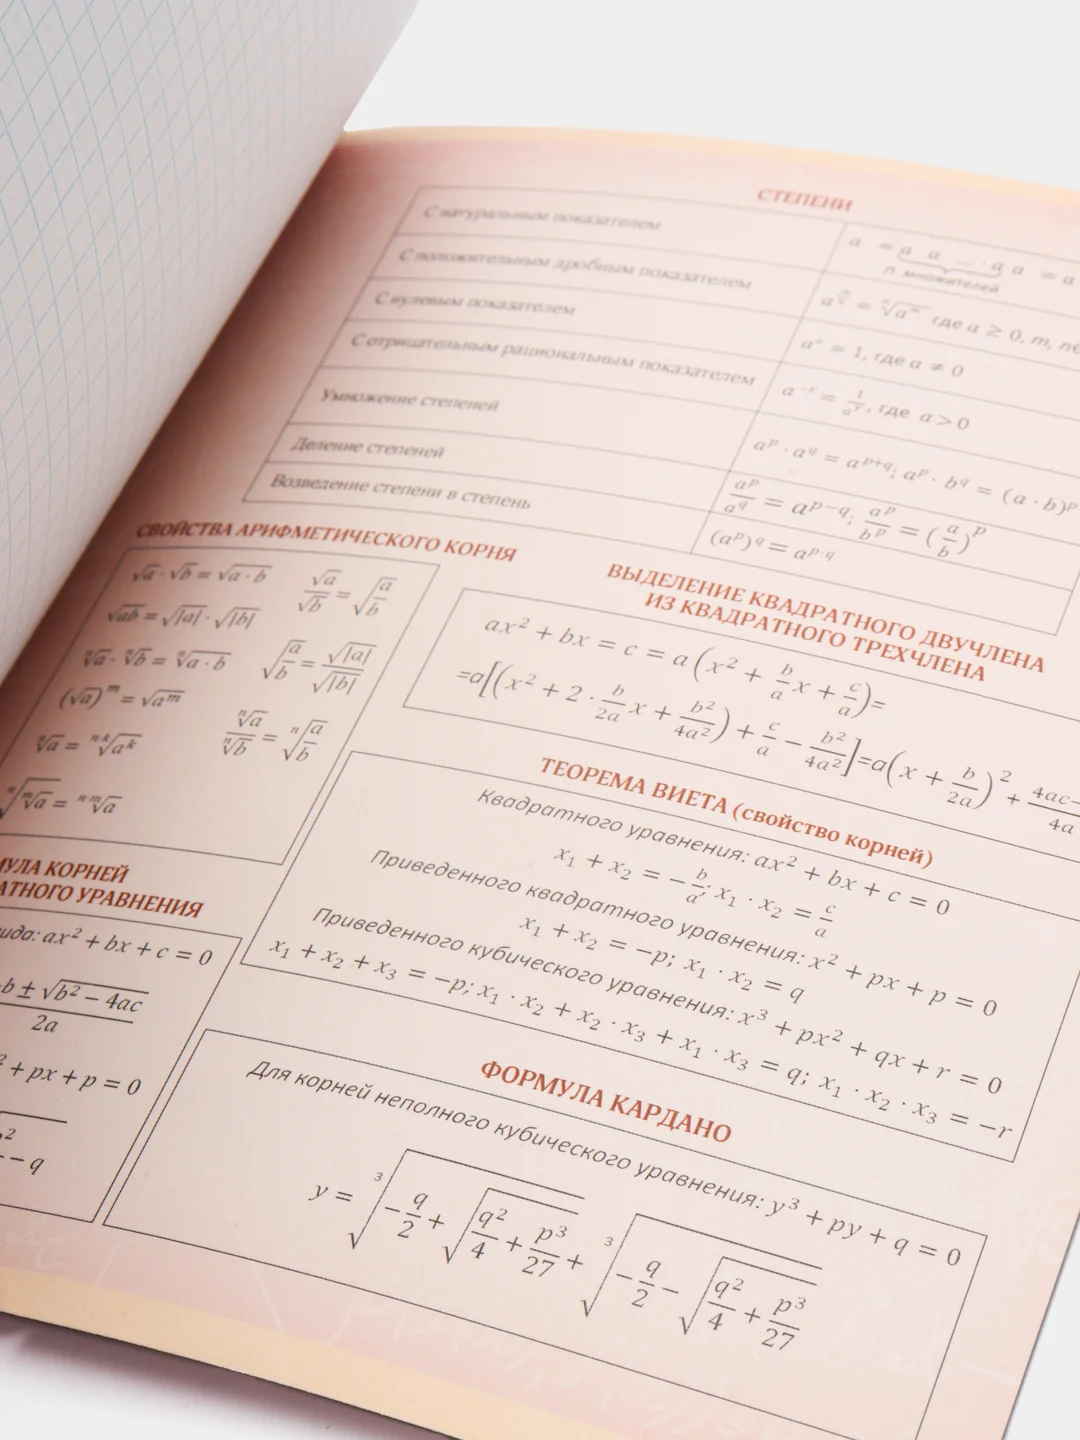 СТЕПЕНИ
С натуральным показателем
a = a a ... · a a = a
n множителей
С положительным дробным показателем
a^(m/n) = ⁿ√a^m где a ≥ 0, m, n∈
С нулевым показателем
a° = 1, где a ≠ 0
С отрицательным рациональным показателем
a^(-r) = 1/a^r, где a > 0
Умножение степеней
a^p · a^q = a^(p+q); a^p · b^q = (a · b)^p
Деление степеней
a^p/a^q = a^(p−q); a^p/b^p = (a/b)^p
Возведение степени в степень
(a^p)^q = a^(p·q)
СВОЙСТВА АРИФМЕТИЧЕСКОГО КОРНЯ
√a · √b = √(a · b) √a/√b = √(a/b)
√ab = √|a| · √|b|
ⁿ√a · ⁿ√b = ⁿ√(a · b) √(a/b) = √|a|/√|b|
(√a)^m = √a^m
ⁿ√a = ⁿ·ᵏ√a^k ⁿ√a/ⁿ√b = ⁿ√(a/b)
ⁿ√(ᵐ√a) = ⁿ·ᵐ√a
ВЫДЕЛЕНИЕ КВАДРАТНОГО ДВУЧЛЕНА
ИЗ КВАДРАТНОГО ТРЕХЧЛЕНА
ax² + bx = c = a(x² + b/a x + c/a)=
=a[(x² + 2 · b/2a x + b²/4a²) + c/a − b²/4a²]=a(x + b/2a)² + 4ac−/4a
ТЕОРЕМА ВИЕТА (свойство корней)
Квадратного уравнения: ax² + bx + c = 0
x₁ + x₂ = −b/a; x₁ · x₂ = c/a
Приведенного квадратного уравнения: x² + px + p = 0
x₁ + x₂ = −p; x₁ · x₂ = q
Приведенного кубического уравнения: x³ + px² + qx + r = 0
x₁ + x₂ + x₃ = −p; x₁ · x₂ + x₂ · x₃ + x₁ · x₃ = q; x₁ · x₂ · x₃ = −r
МУЛА КОРНЕЙ
АТНОГО УРАВНЕНИЯ
ида: ax² + bx + c = 0
b ± √(b² − 4ac)/2a
² + px + p = 0
² − q
ФОРМУЛА КАРДАНО
Для корней неполного кубического уравнения: y³ + py + q = 0
y = ³√(−q/2 + √(q²/4 + p³/27)) + ³√(−q/2 − √(q²/4 + p³/27))